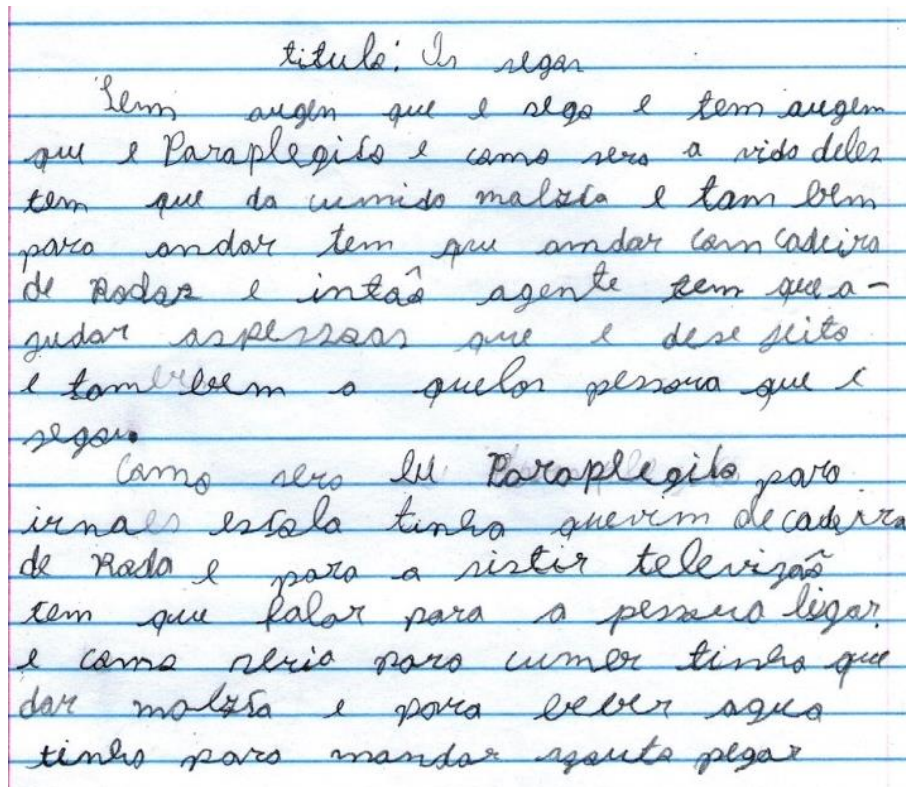 titulo: Os segos
Tem augen que e sego e tem augem
que e Paraplegito e como sera a vida deles
tem que da cumida malzia e tam bem
para andar tem que amdar com cadeira
de Rodas e intaô agente tem que a-
judar aspessoas que e dese jeito
e tambem a quelas pessoua que e
segou.
Como sera eu Paraplegito para
irna escola tinha quevim decadeirra
de Roda e para a sistir televizaõ
tem que falar para a pessoua ligar
e como seria para cumer tinha que
dar malzia e para beber agua
tinha para mandar pegar